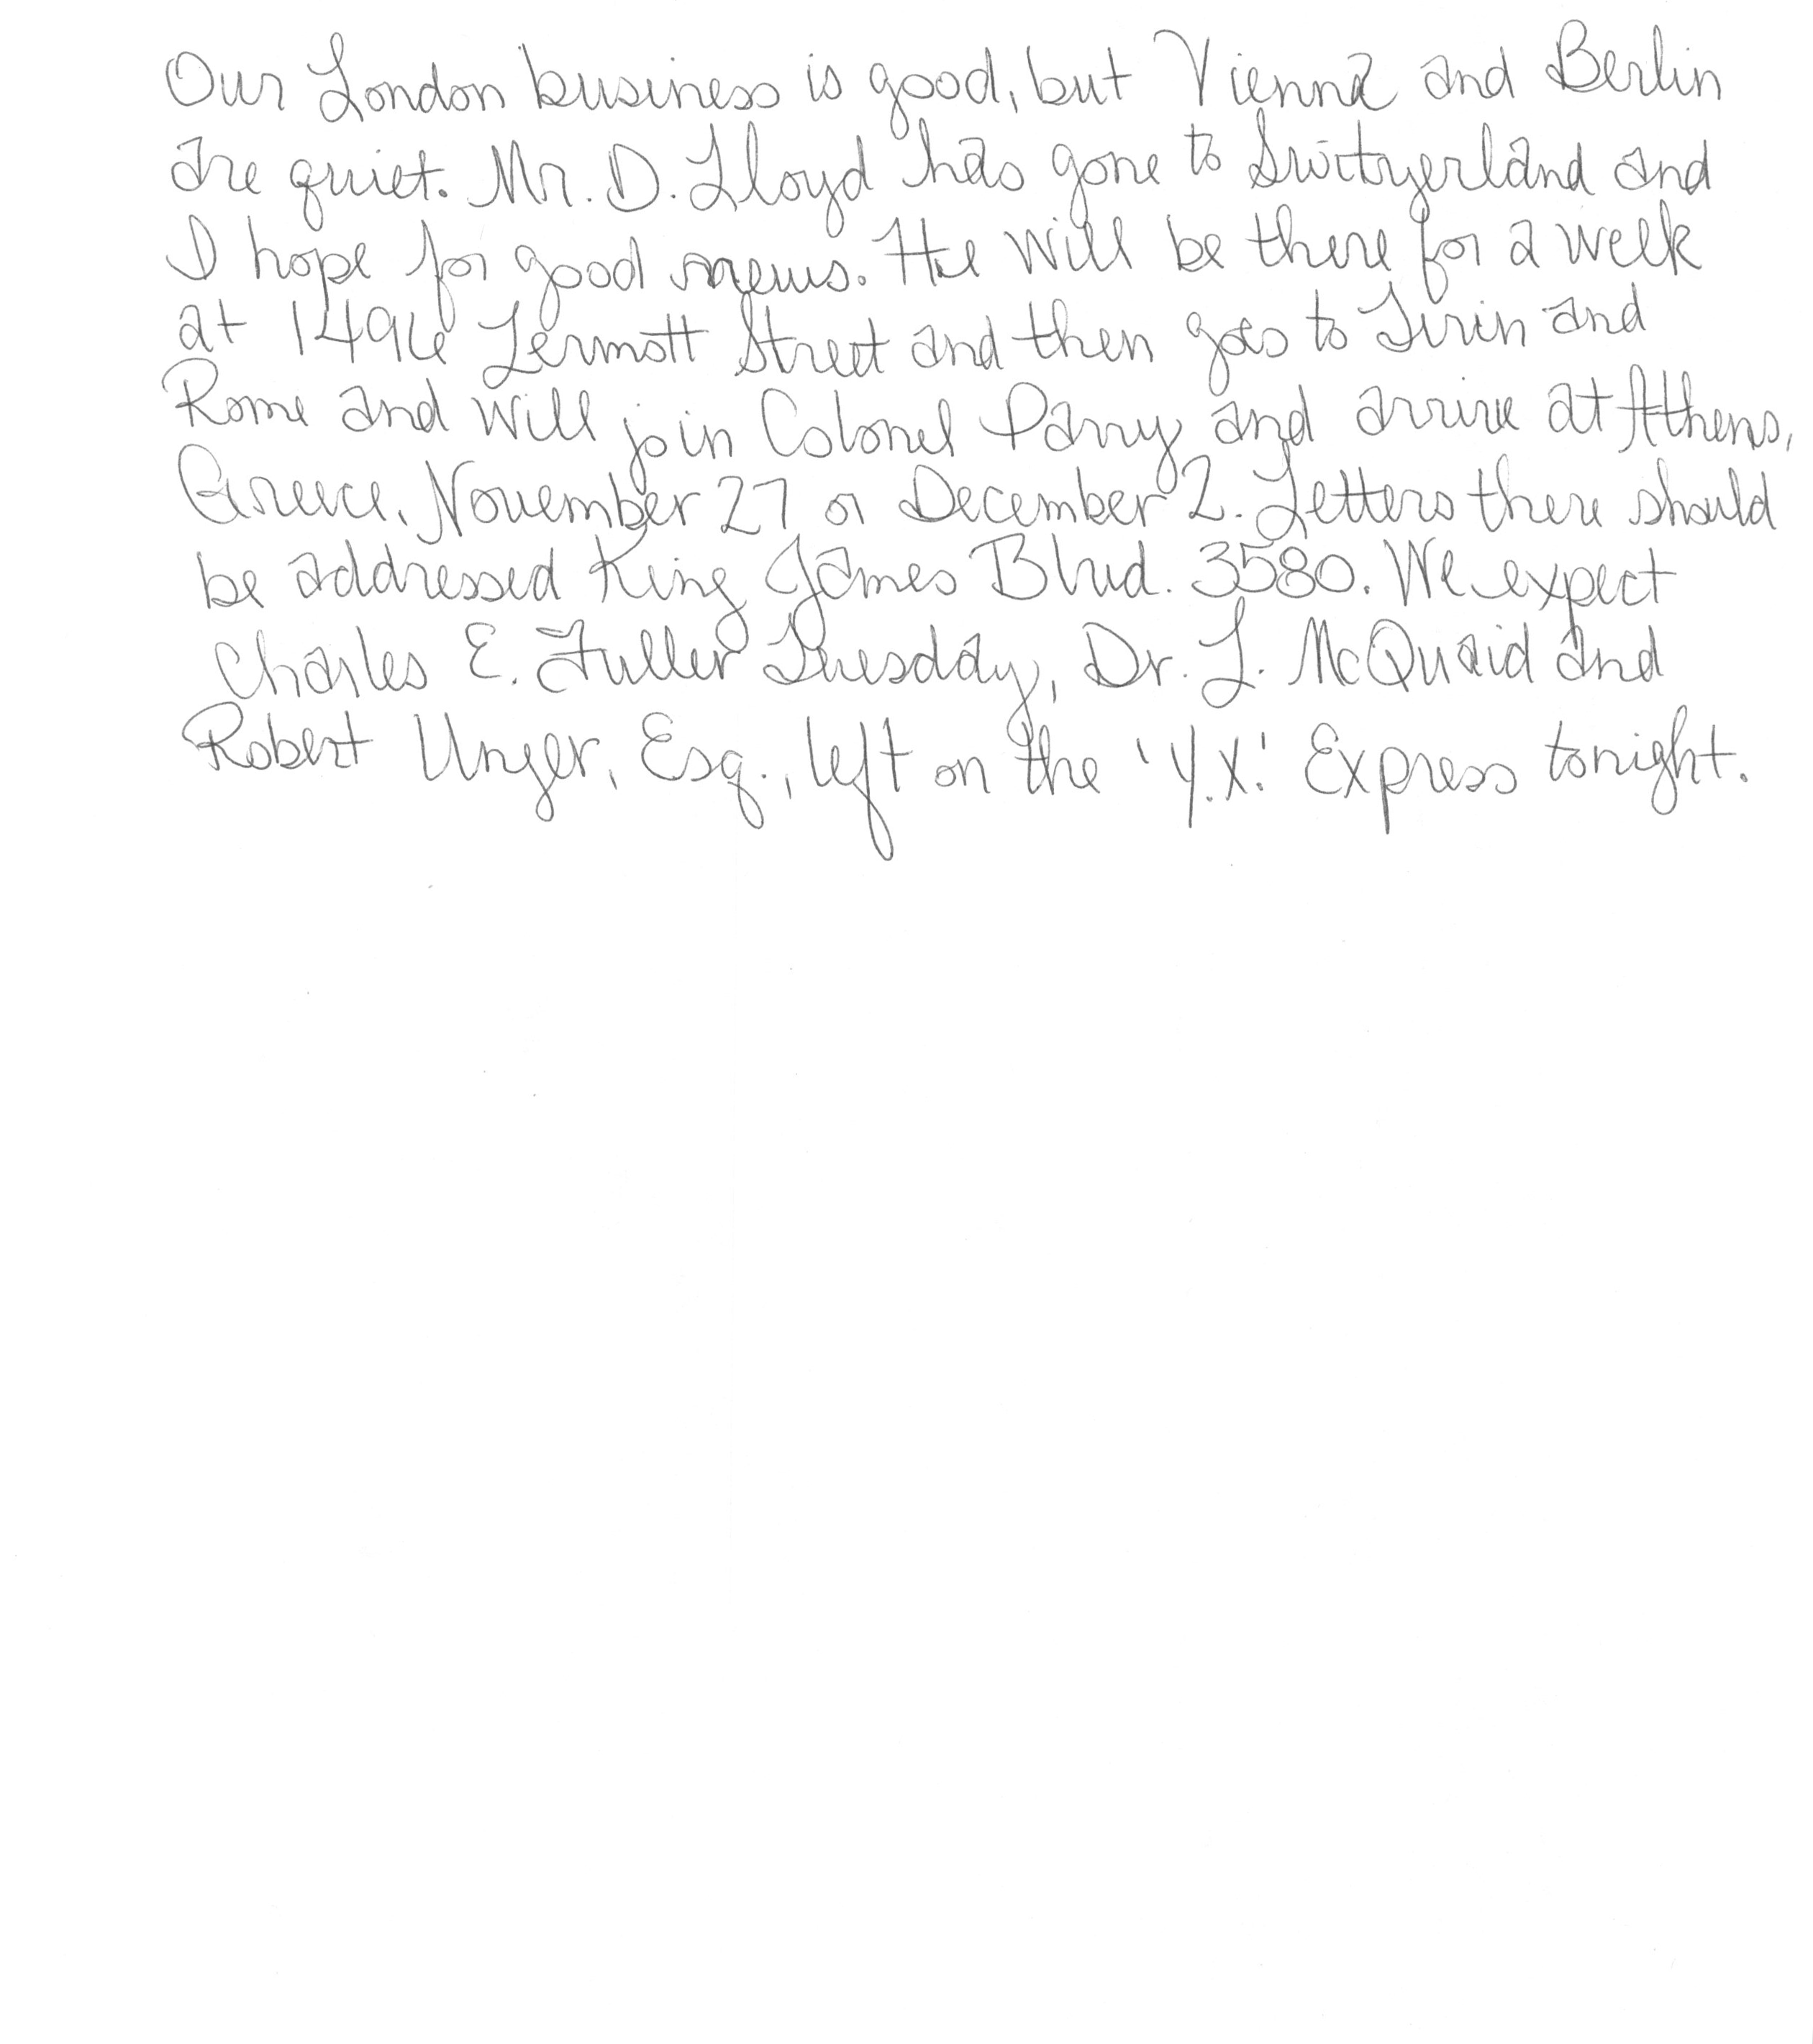 Our London business is good, but Vienna and Berlin
are quiet. Mr. D. Lloyd has gone to Switzerland and
I hope for good news. He will be there for a week
at 1496 Zermott Street and then goes to Turin and
Rome and will join Colonel Parry and arrive at Athens,
Greece, November 27 or December 2. Letters there should
be addressed King James Blvd. 3580. We expect
Charles E. Fuller Tuesday, Dr. L. McQuaid and
Robert Unger, Esq., left on the 'Y.X.' Express tonight.